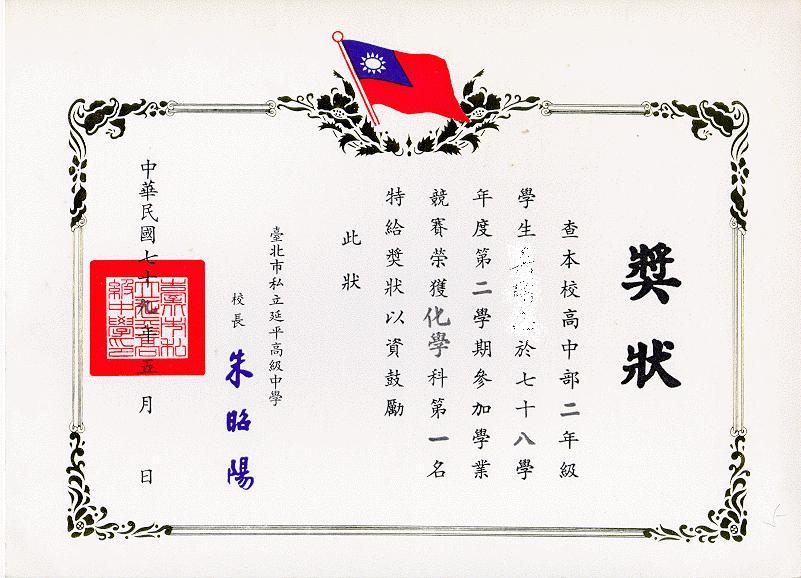 獎狀
查本校高中部二年級
學生於七十八學
年度第二學期參加學業
競賽榮獲化學科第一名
特給獎狀以資鼓勵
此狀
臺北市私立延平高級中學
校長 朱昭陽
中華民國七十九年五月 日